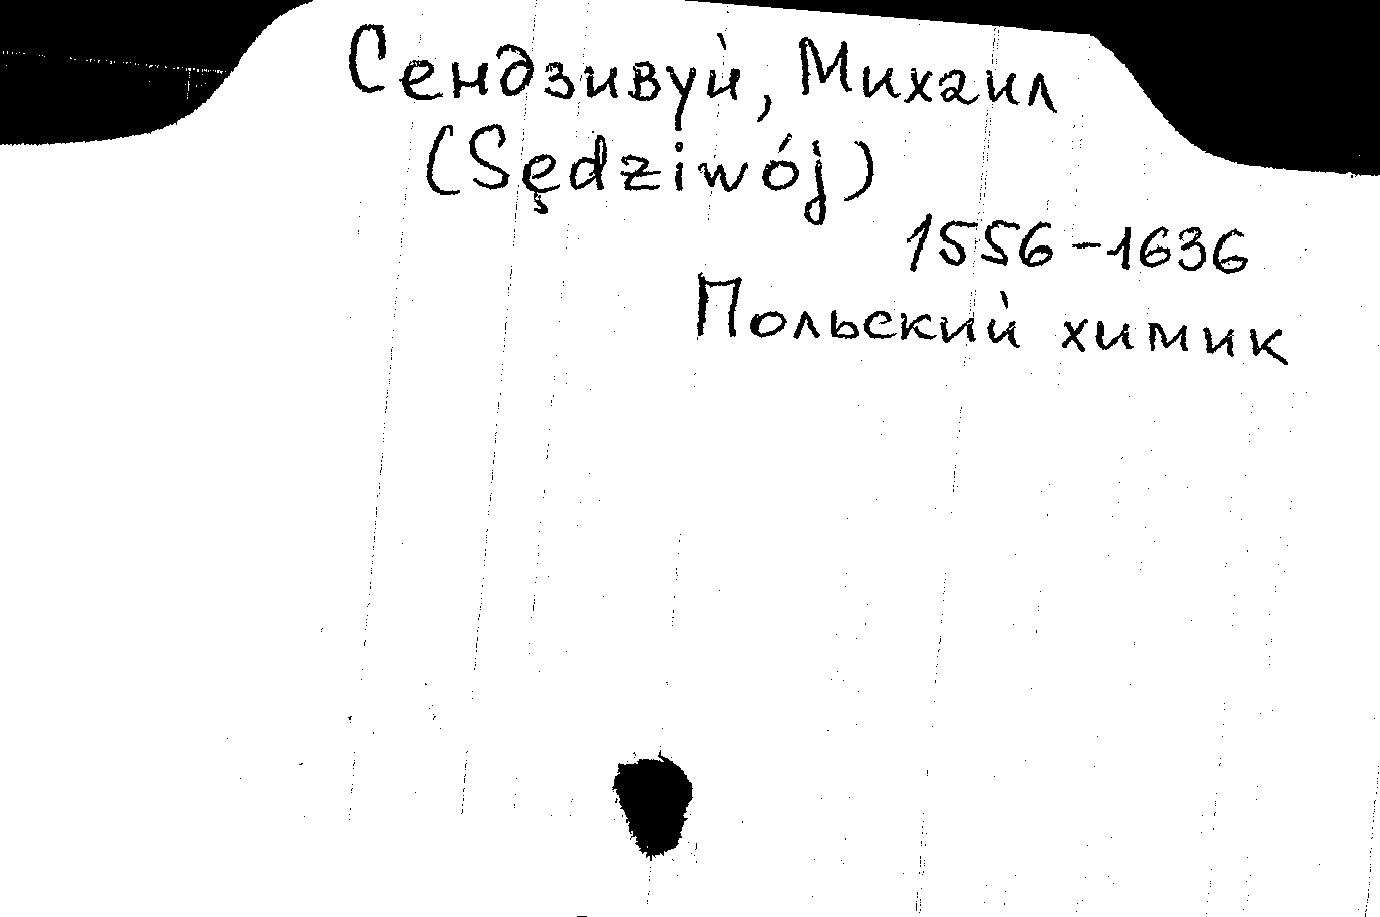 Сендзивуй, Михаил
(Sędziwój)
1556-1636
Польский химик